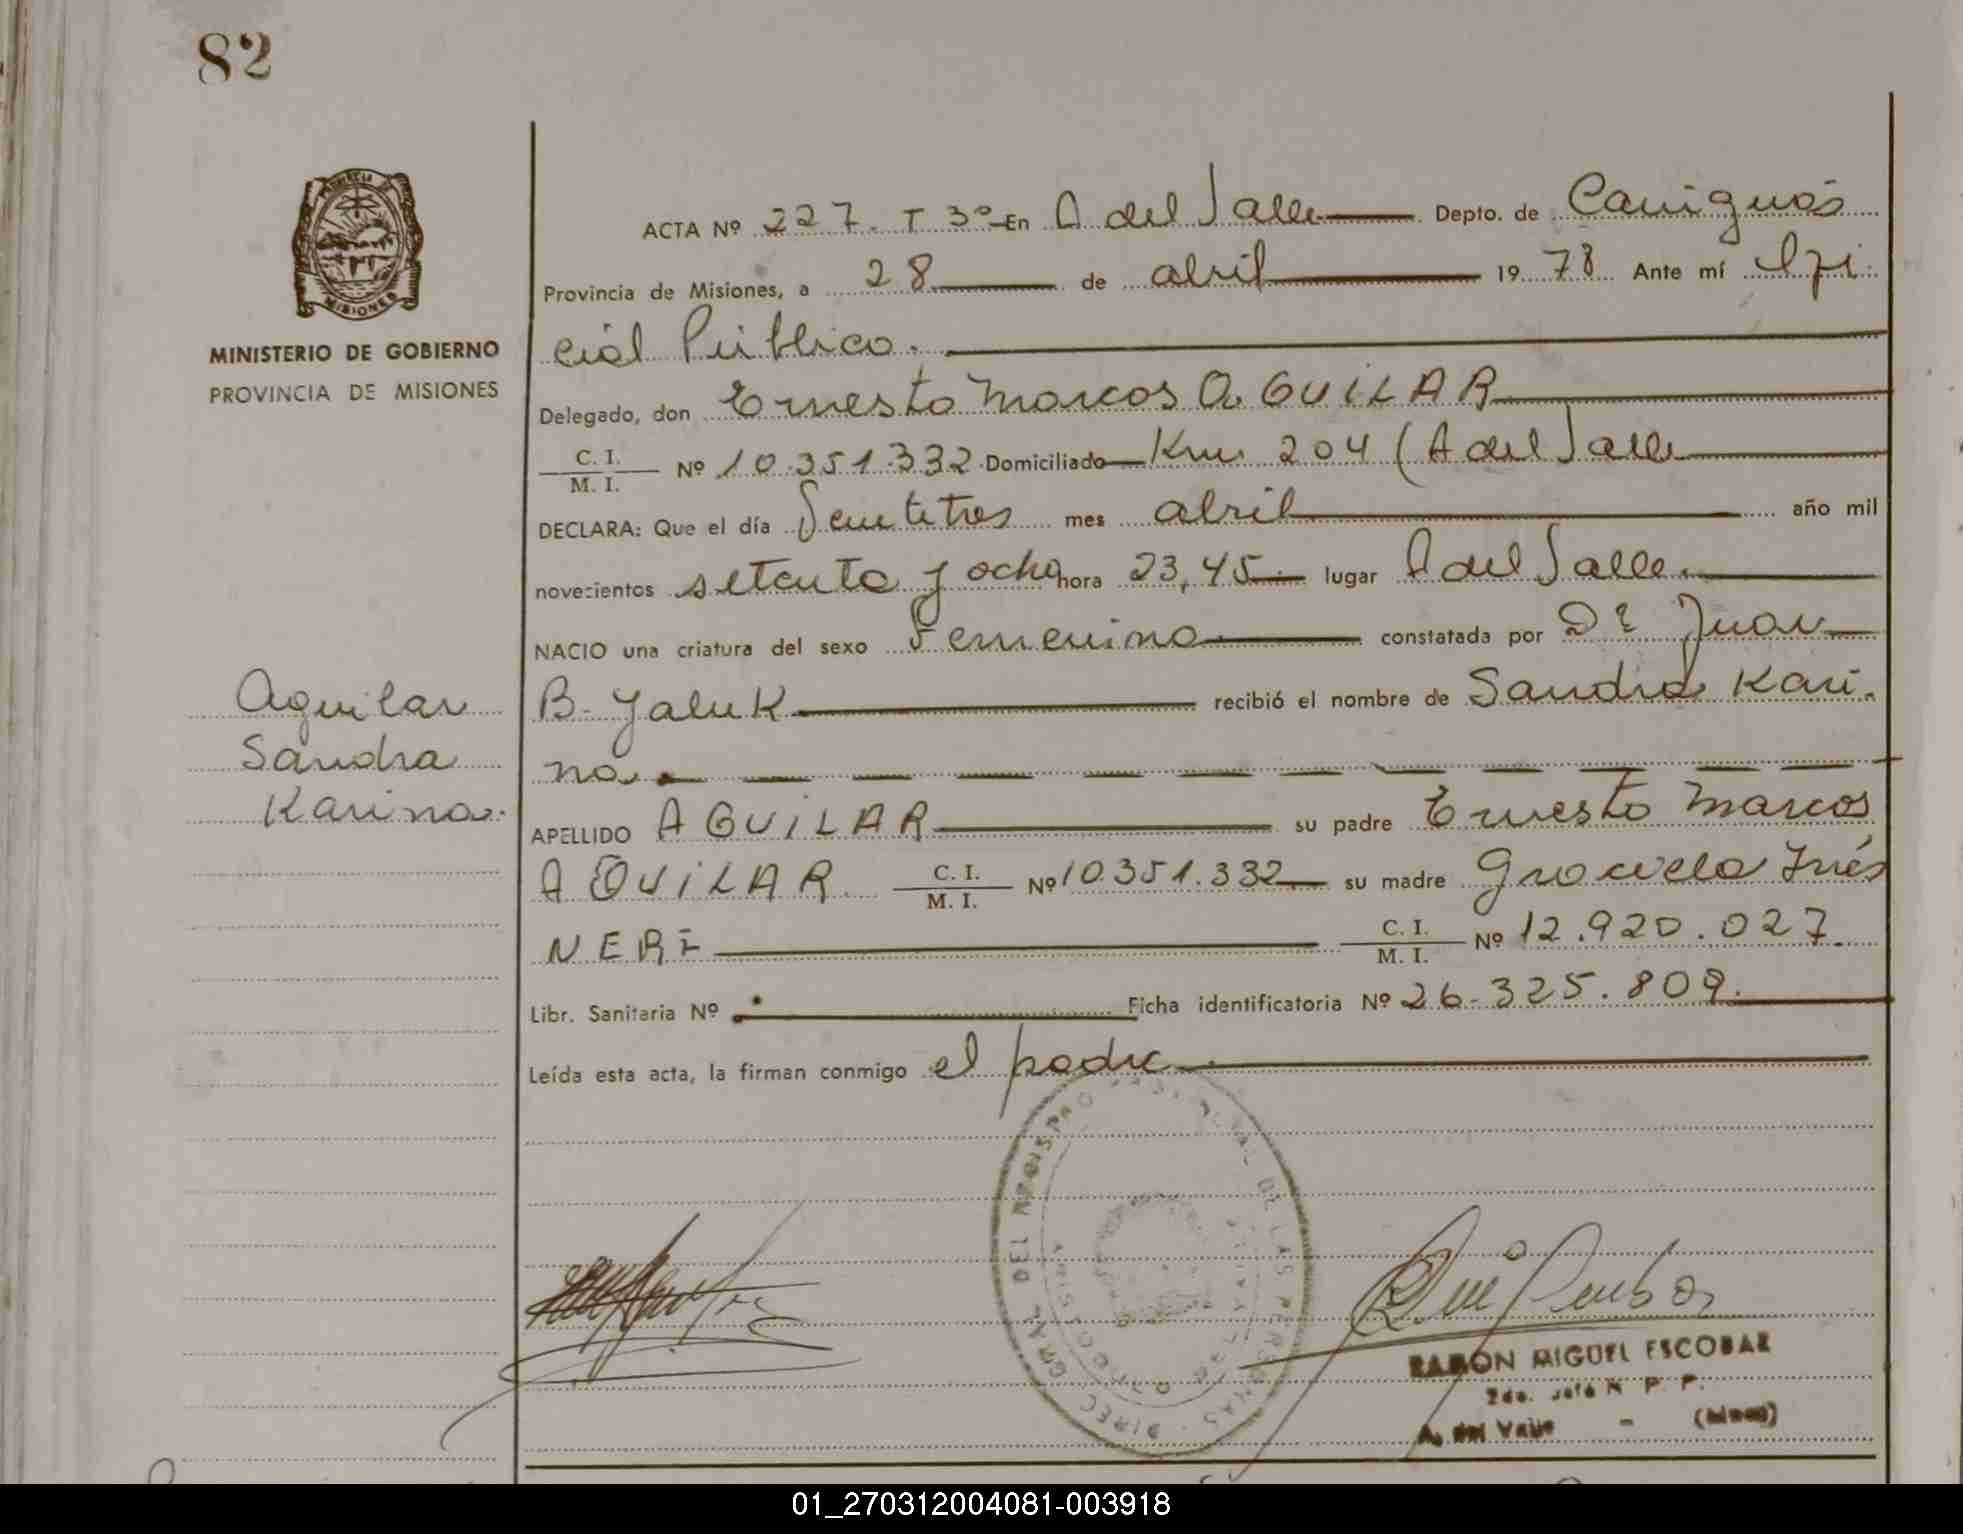 82
MINISTERIO DE GOBIERNO
PROVINCIA DE MISIONES
MISIONES
Aguilar
Sandra
Karina.
ACTA Nº 227. T 3º En A del Valle Depto. de Cainguás
Provincia de Misiones, a 28 de abril 19 78 Ante mí Ofi
cial Público.
Delegado, don Ernesto Marcos AGUILAR
C. I. / M. I. Nº 10.351.332. Domiciliado Km. 204 (A del Valle
DECLARA: Que el día Veintitres mes abril año mil
novecientos setenta y ocho hora 23,45 lugar A del Valle.
NACIO una criatura del sexo Femenino constatada por Dr Juan
B. Yaluk recibió el nombre de Sandra Kari
na.
APELLIDO AGUILAR su padre Ernesto Marcos
AGUILAR. C. I. / M. I. Nº 10.351.332 su madre Graciela Inés
NERI C. I. / M. I. Nº 12.920.027.
Libr. Sanitaria Nº Ficha identificatoria Nº 26.325.809.
Leída esta acta, la firman conmigo el padre.
DIREC. GRAL. DEL REGISTRO DE LAS PERSONAS
RAMON MIGUEL ESCOBAR
2do. Jefe R P. P.
A. del Valle - (Mnes)
01_270312004081-003918